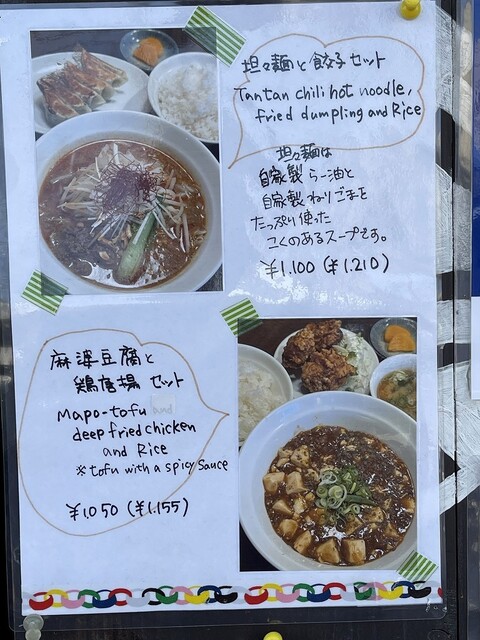 坦々麺と餃子セット
Tantan chili hot noodle,
fried dumpling and Rice
坦々麺は
自家製 らー油と
自家製 ねりごまを
たっぷり使った
こくのあるスープです。
¥1.100 (¥1.210)
麻婆豆腐と
鶏唐揚 セット
Mapo-tofu and
deep fried chicken
and Rice
※tofu with a spicy sauce
¥1050 (¥1.155)